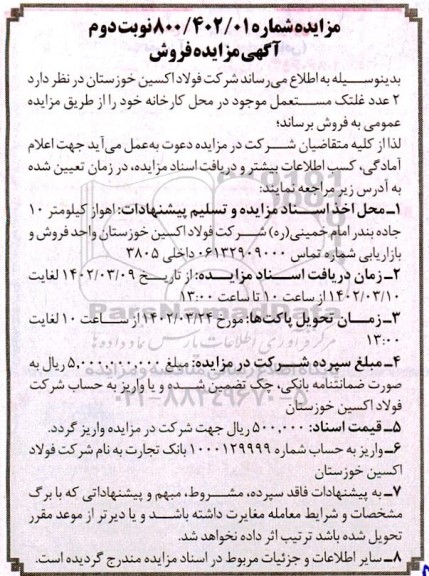 مزایده شماره ۸۰۰/۴۰۲/۰۱ نوبت دوم
آگهی مزایده فروش
بدینوسیله به اطلاع می‌رساند شرکت فولاد اکسین خوزستان در نظر دارد
۲ عدد غلتک مستعمل موجود در محل کارخانه خود را از طریق مزایده
عمومی به فروش برساند؛
لذا از کلیه متقاضیان شرکت در مزایده دعوت به‌عمل می‌آید جهت اعلام
آمادگی، کسب اطلاعات بیشتر و دریافت اسناد مزایده، در زمان تعیین شده
به آدرس زیر مراجعه نمایند:
۱ـ محل اخذ اسناد مزایده و تسلیم پیشنهادات: اهواز کیلومتر ۱۰
جاده بندر امام خمینی(ره) شرکت فولاد اکسین خوزستان واحد فروش و
بازاریابی شماره تماس ۰۶۱۳۲۹۰۹۰۰۰ داخلی ۳۸۰۵
۲ـ زمان دریافت اسناد مزایده: از تاریخ ۱۴۰۲/۰۳/۰۹ لغایت
۱۴۰۲/۰۳/۱۰ از ساعت ۱۰ تا ساعت ۱۳:۰۰
۳ـ زمان تحویل پاکت‌ها: مورخ ۱۴۰۲/۰۳/۲۴ از ساعت ۱۰ لغایت
۱۳:۰۰
۴ـ مبلغ سپرده شرکت در مزایده: مبلغ ۵,۰۰۰,۰۰۰,۰۰۰ ریال به
صورت ضمانتنامه بانکی، چک تضمین شده و یا واریز به حساب شرکت
فولاد اکسین خوزستان
۵ـ قیمت اسناد: ۵۰۰,۰۰۰ ریال جهت شرکت در مزایده واریز گردد.
۶ـ واریز به حساب شماره ۱۰۰۰۱۲۹۹۹۹ بانک تجارت به نام شرکت فولاد
اکسین خوزستان
۷ـ به پیشنهادات فاقد سپرده، مشروط، مبهم و پیشنهاداتی که با برگ
مشخصات و شرایط معامله مغایرت داشته باشد و یا دیرتر از موعد مقرر
تحویل شده باشد ترتیب اثر داده نخواهد شد.
۸ـ سایر اطلاعات و جزئیات مربوط در اسناد مزایده مندرج گردیده است.
ParsNamadData
۰۲۱-۸۸۳۴۹۶۷۰-۵